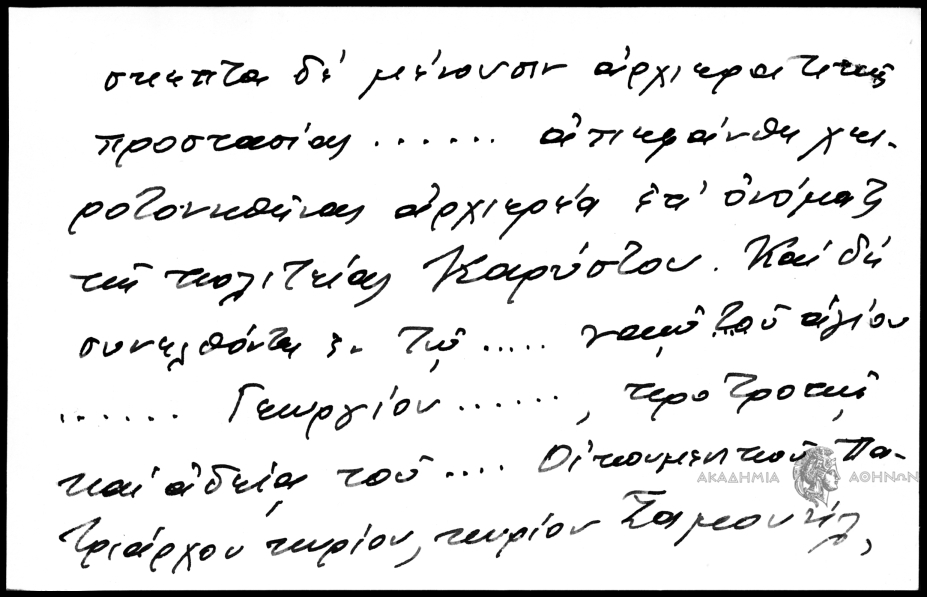 σκεπτα δέ μένουσιν ἀρχιερατικῆς
προστασίας ...... ἀπεφάνθη χει-
ροτονηθῆναι ἀρχιερέα ἐπ' ὀνόματι
τῆς πολιτείας Καρύστου. Καί δή
συνελθόντες ἐν τῷ ..... ναῷ τοῦ ἁγίου
...... Γεωργίου ......, προτροπῇ
καί ἀδείᾳ τοῦ .... Οἰκουμενικοῦ Πα-
τριάρχου κυρίου, κυρίου Σαμουήλ,
ΑΚΑΔΗΜΙΑ ΑΘΗΝΩΝ